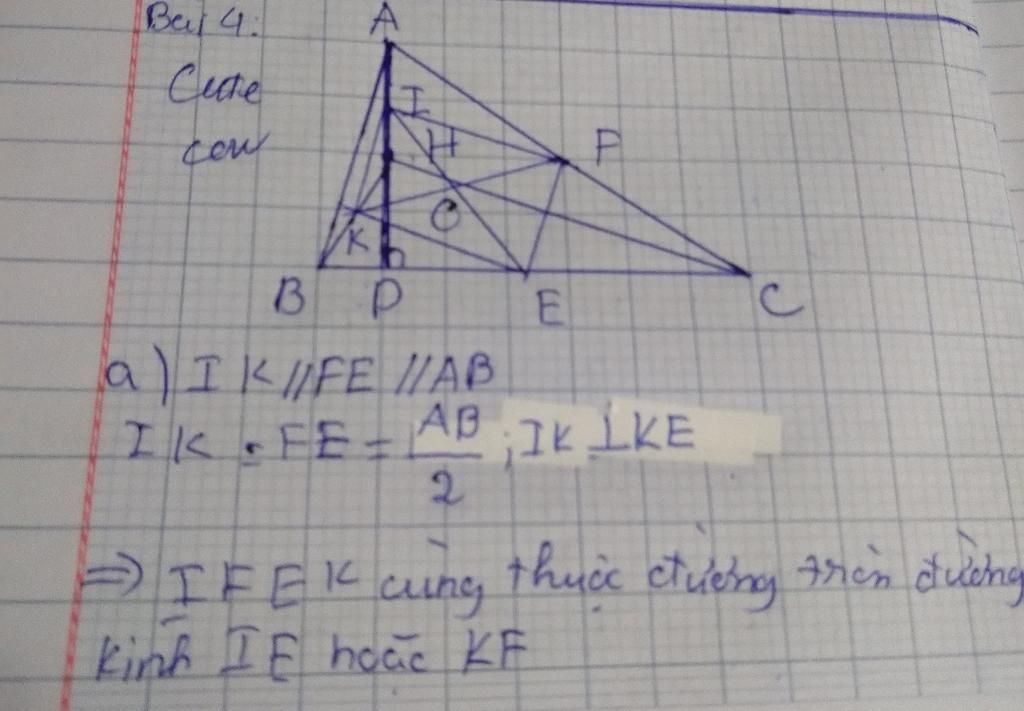 Bài 4:
Cute
cow
A
I
H
F
O
K
B D E C
a) IK//FE//AB
IK = FE = AB/2; IK ⊥ KE
=> I F E K cùng thuộc đường tròn đường
kính IE hoặc KF